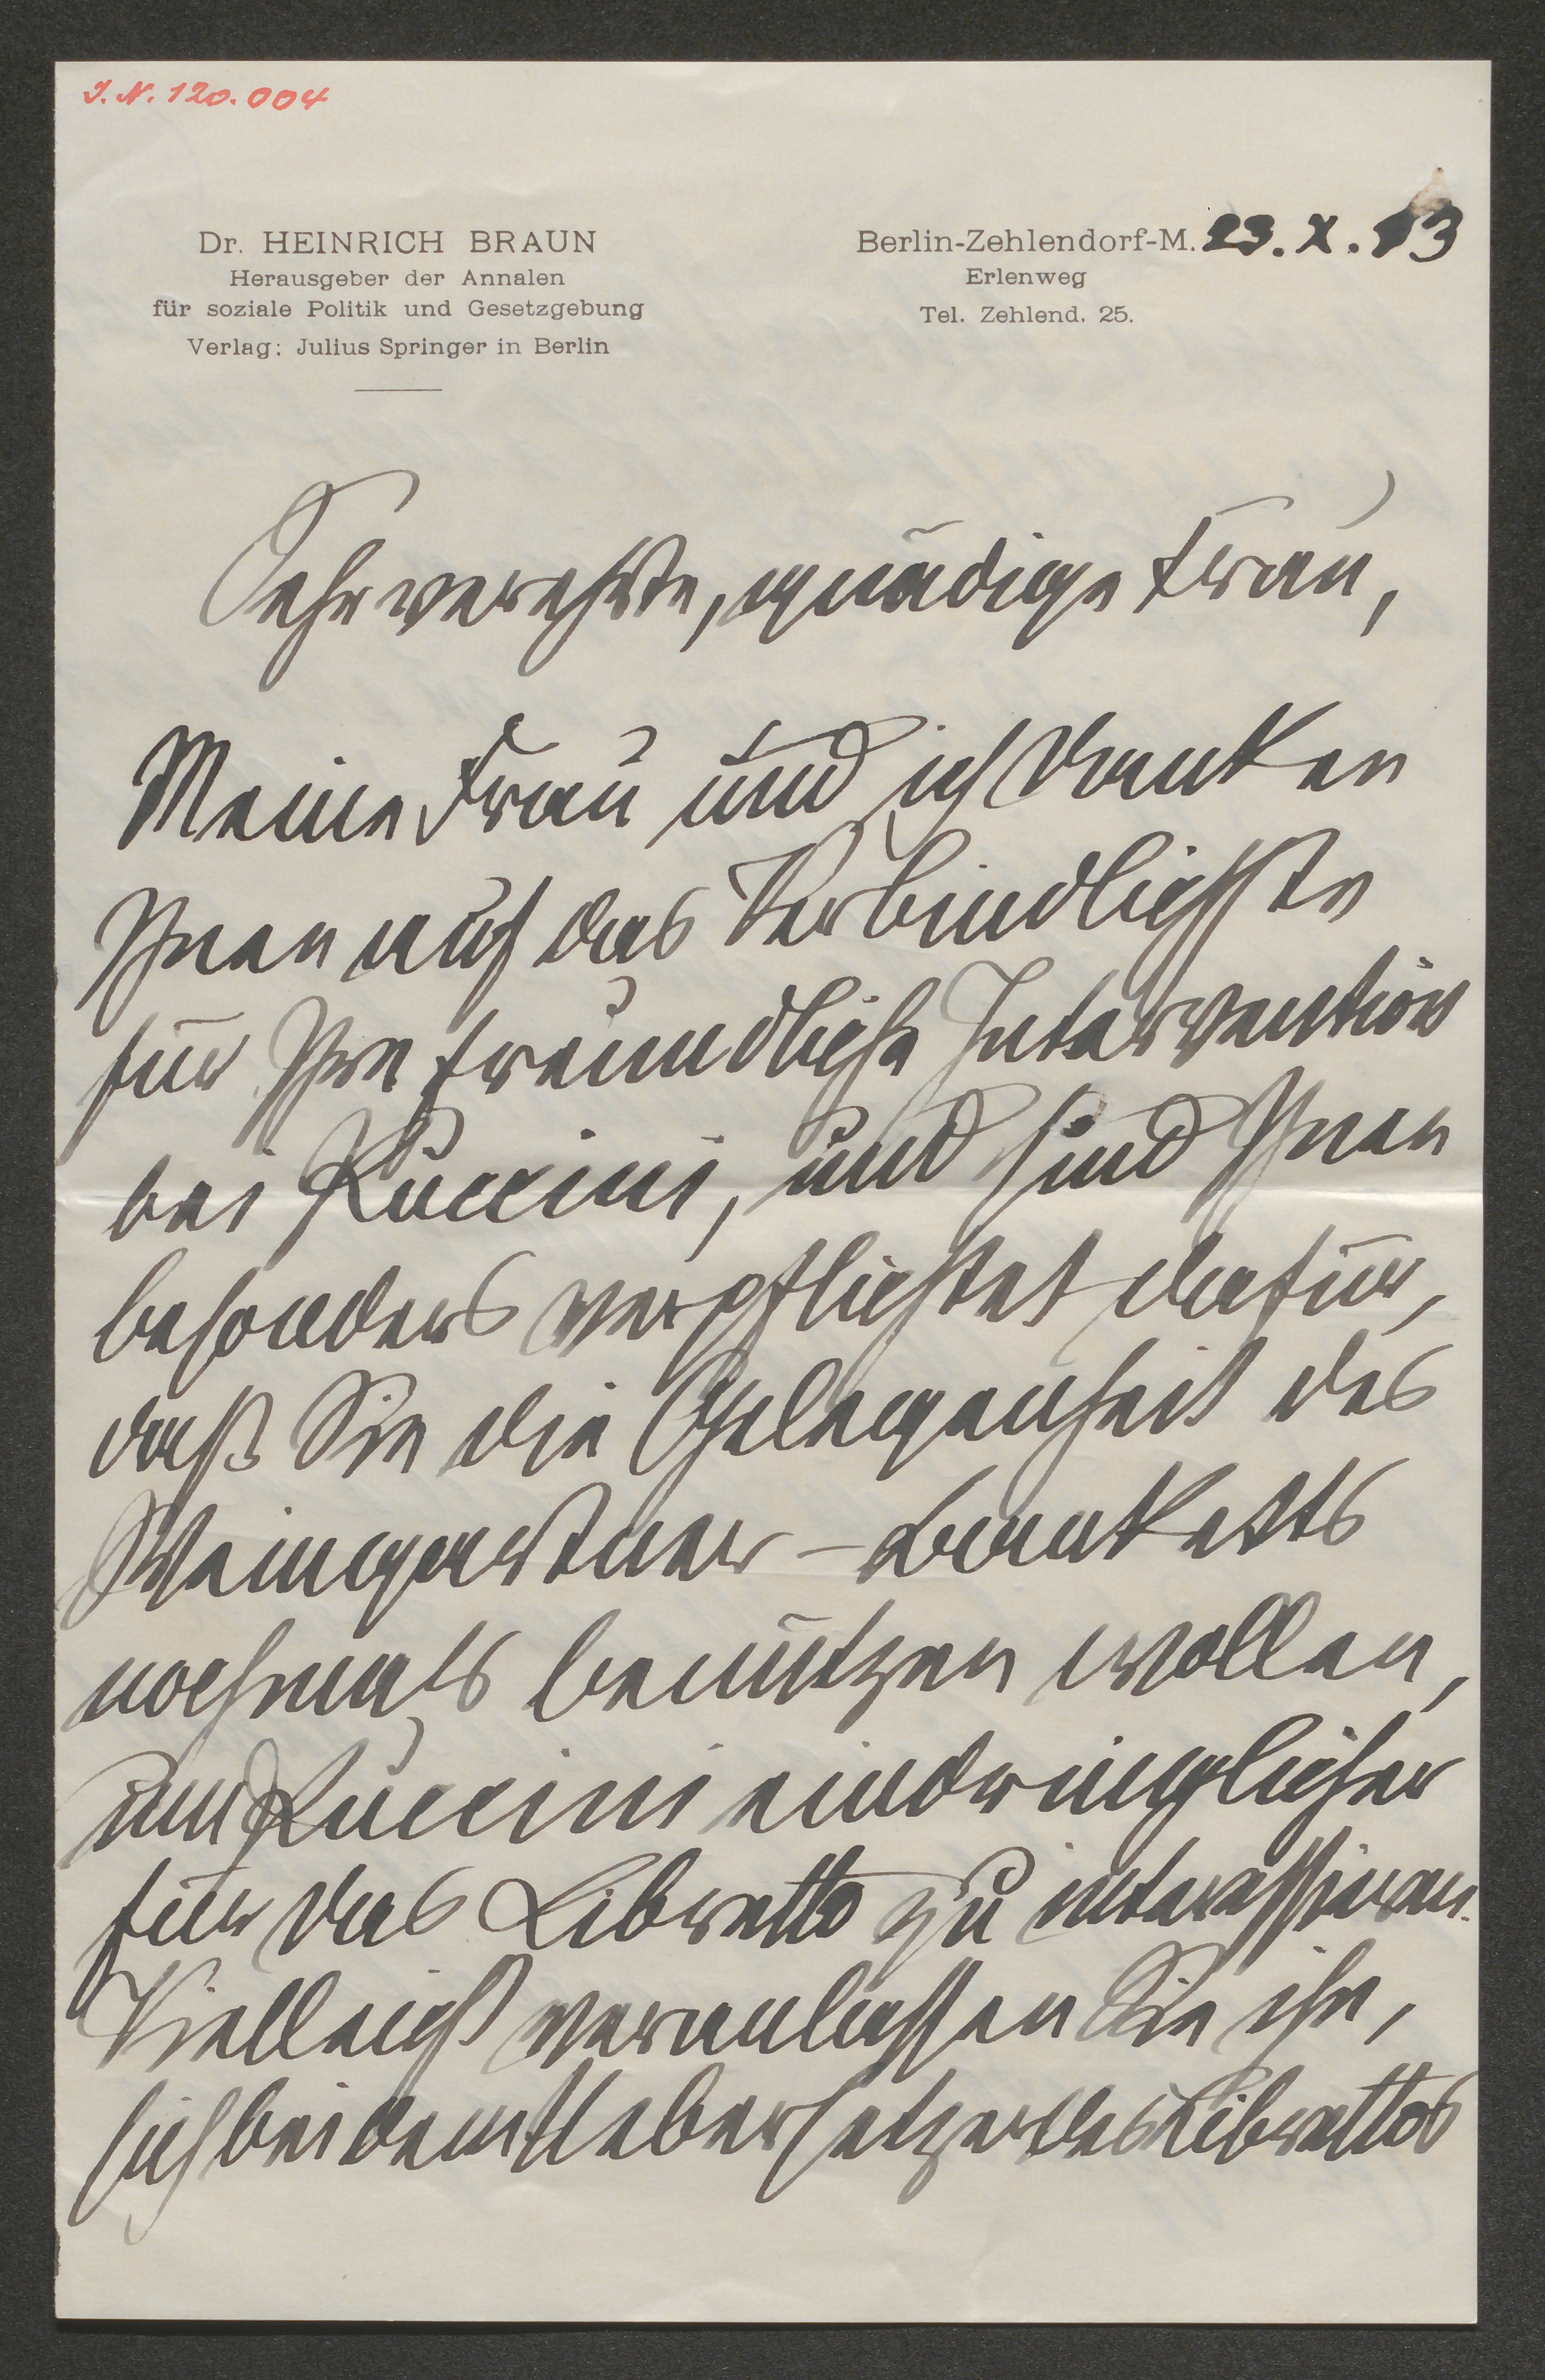 J.N. 120.004
Dr. HEINRICH BRAUN
Herausgeber der Annalen
für soziale Politik und Gesetzgebung
Verlag: Julius Springer in Berlin
Berlin-Zehlendorf-M. 23. X. 13
Erlenweg
Tel. Zehlend. 25.
Sehr verehrte, gnädige Frau,
Meine Frau und ich danken
Ihnen auf das Verbindlichste
für Ihre freundliche Intervention
bei Puccini, und sind Ihnen
besonders verpflichtet dafür,
daß Sie die Gelegenheit des
Weingartner-Banketts
nochmals benützen wollen,
um Puccini eindringlicher
für das Libretto zu interessieren.
Vielleicht veranlassen Sie ihn,
sich bei dem Uebersetzer des Librettos